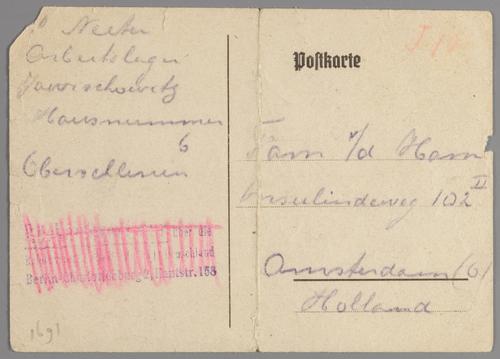 Neeter
Arbeitslager
Jawischowitz
Hausnummer
6
Oberschlesien
über die
schland
Berlin-Charlottenburg 2, Kantstr. 158
1691
Postkarte
Fam v/d Ham
Insulindeweg 102 II
Amsterdam (O)
Holland